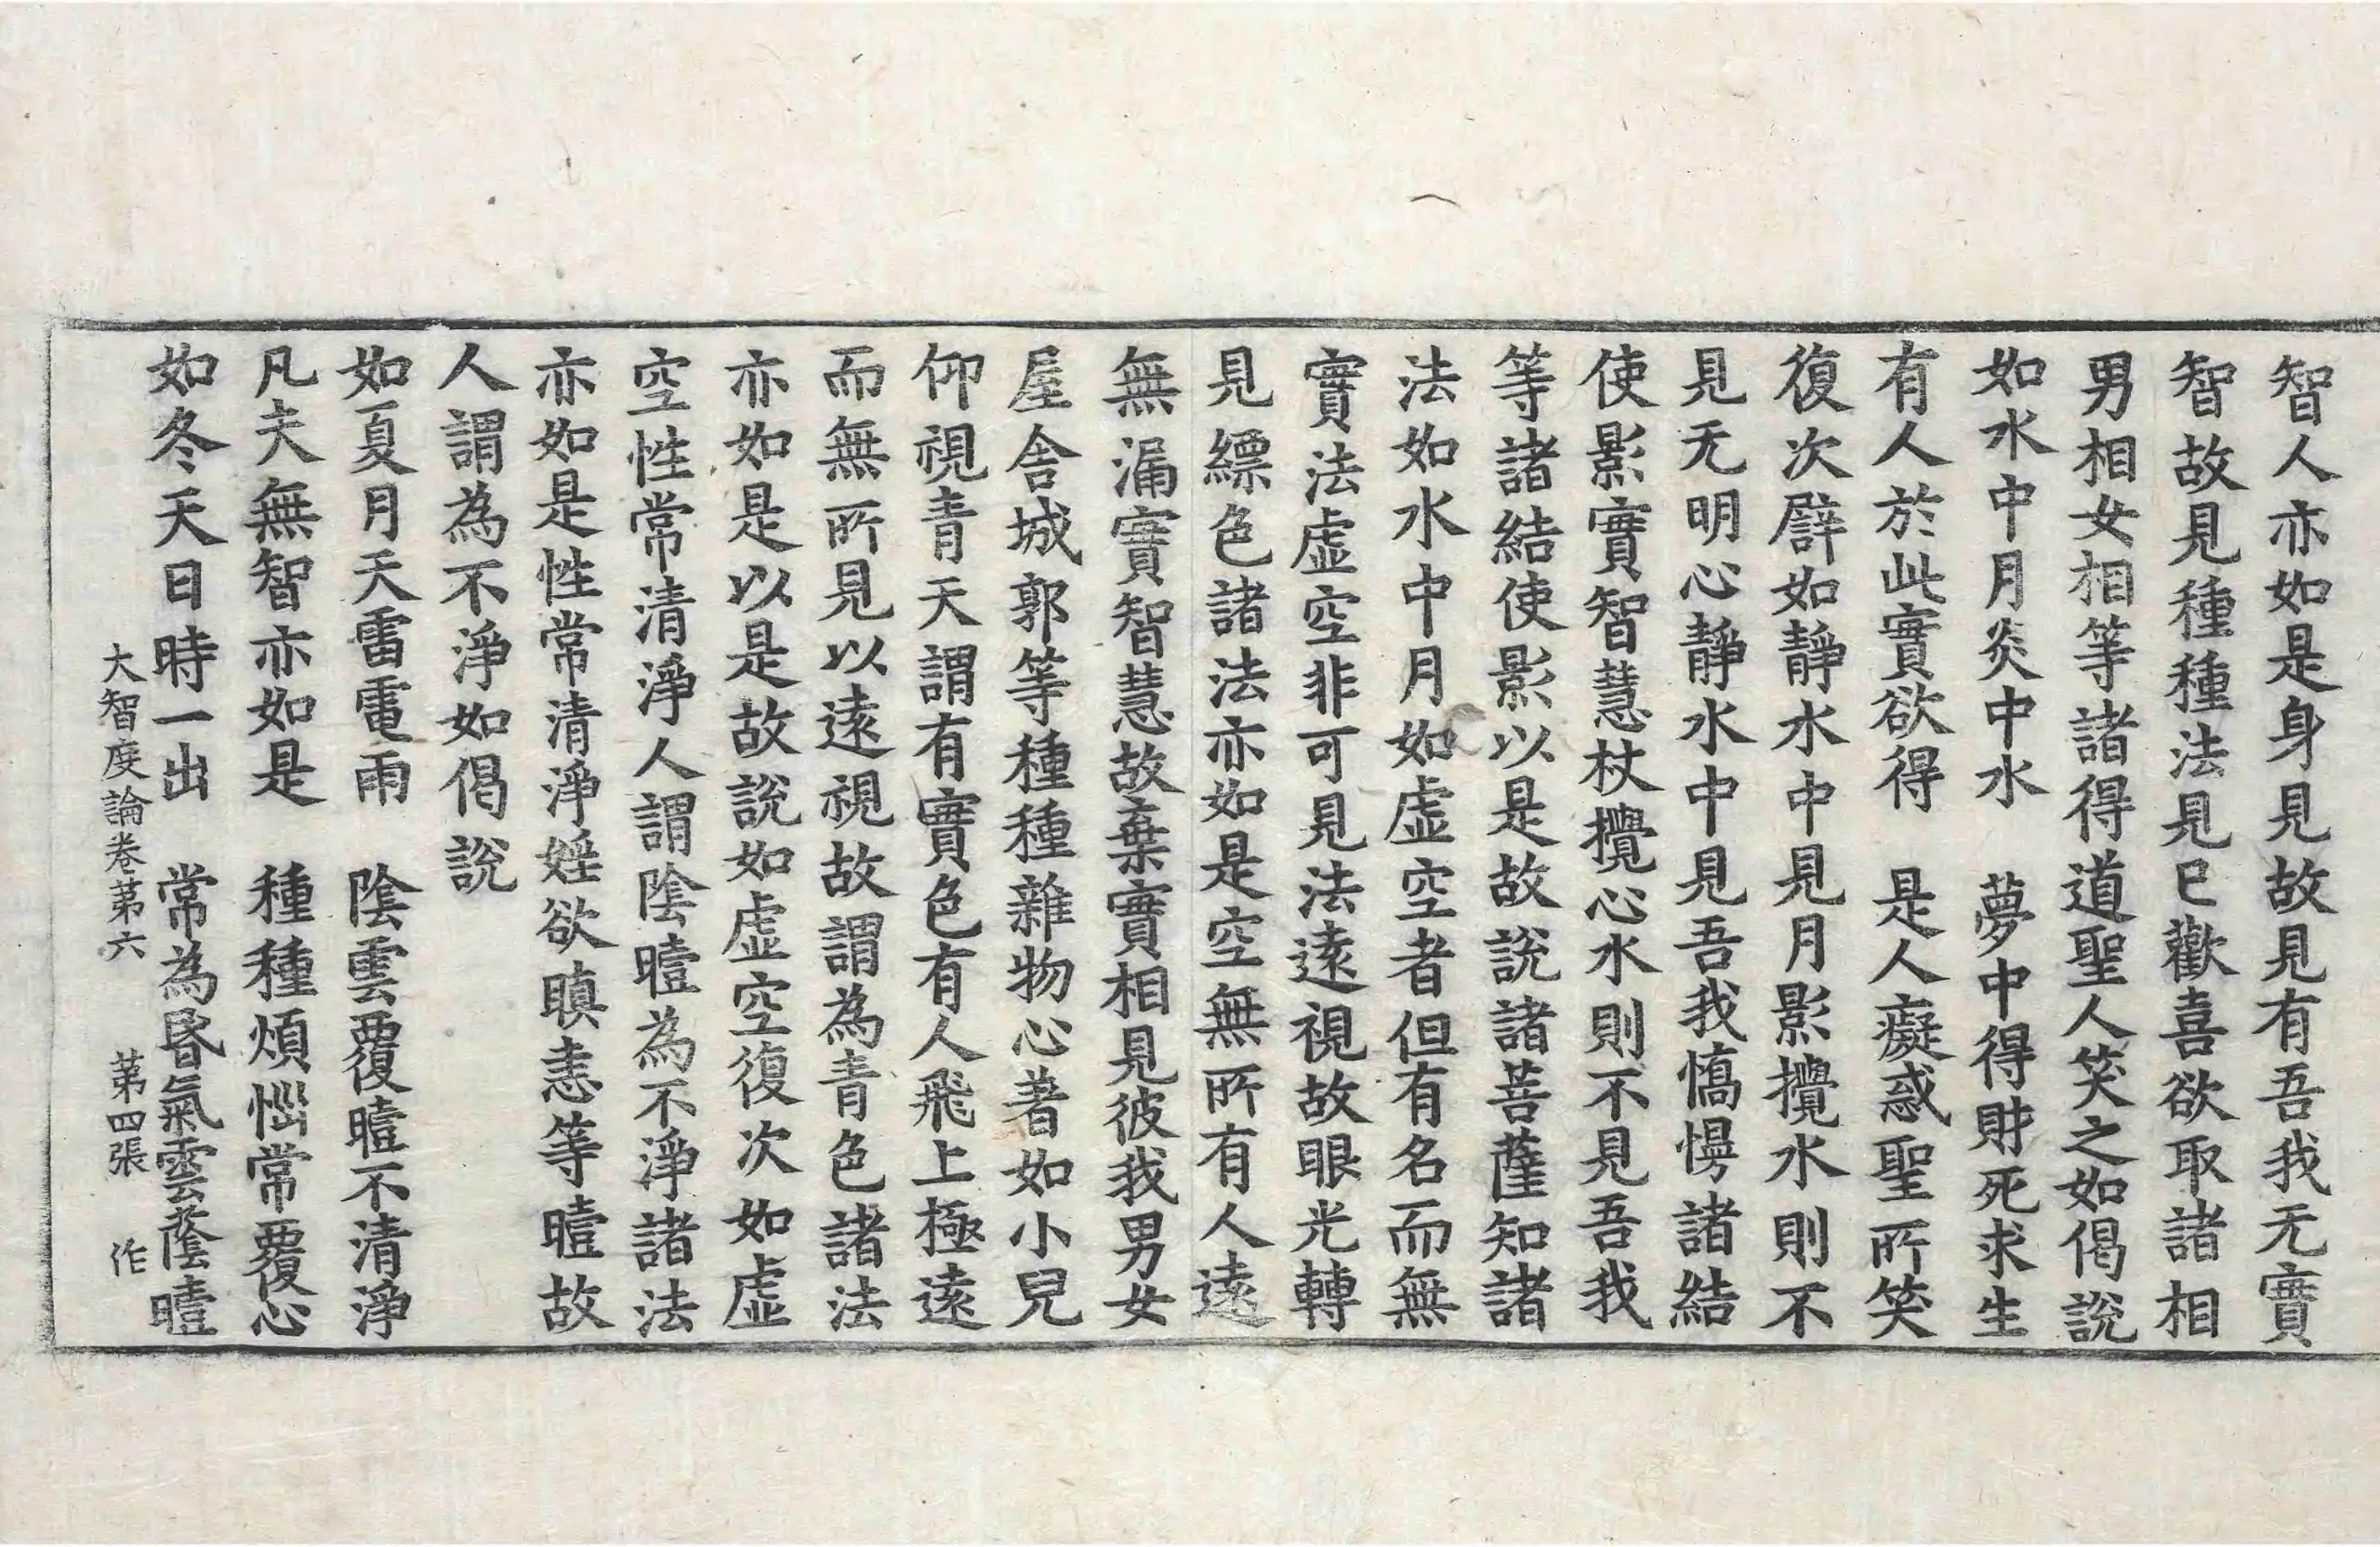 智人亦如是身見故見有吾我无實
智故見種種法見已歡喜欲取諸相
男相女相等諸得道聖人笑之如偈說
如水中月炎中水　夢中得財死求生
有人於此實欲得　是人癡惑聖所笑
復次譬如靜水中見月影攪水則不
見无明心靜水中見吾我憍慢諸結
使影實智慧杖攪心水則不見吾我
等諸結使影以是故說諸菩薩知諸
法如水中月如虛空者但有名而無
實法虛空非可見法遠視故眼光轉
見縹色諸法亦如是空無所有人遠
無漏實智慧故棄實相見彼我男女
屋舍城郭等種種雜物心著如小兒
仰視青天謂有實色有人飛上極遠
而無所見以遠視故謂為青色諸法
亦如是以是故說如虛空復次如虛
空性常清淨人謂陰曀為不淨諸法
亦如是性常清淨婬欲瞋恚等曀故
人謂為不淨如偈說
如夏月天雷電雨　陰雲覆曀不清淨
凡夫無智亦如是　種種煩惱常覆心
如冬天日時一出　常為昏氣雲蔭曀
大智度論卷第六　第四張　作